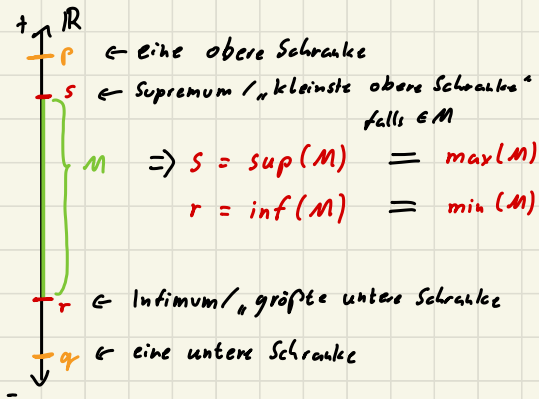 + ℝ
p ← eine obere Schranke
s ← Supremum / „kleinste obere Schranke“
falls ∈ M
M ⇒ s = sup(M) = max(M)
r = inf(M) = min(M)
r ← Infimum/„größte untere Schranke
q ← eine untere Schranke
-